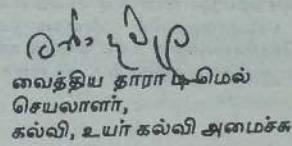 வைத்திய தாரா டி மெல்
செயலாளர்,
கல்வி, உயர் கல்வி அமைச்சு